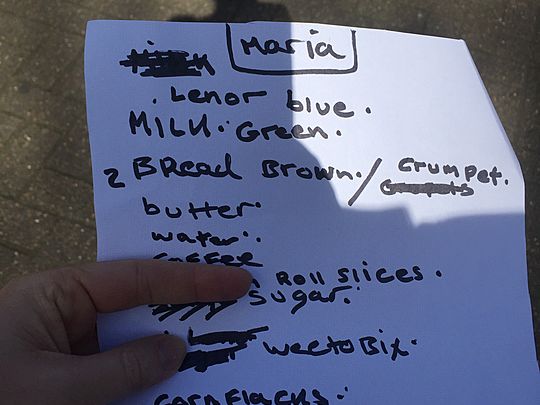 Maria
. Lenor blue.
MILK. Green.
2 BRead Brown. / Crumpet.
butter.
water.
COFFEE
Roll slices.
Sugar.
WeetoBix.
CORNFLACKS.